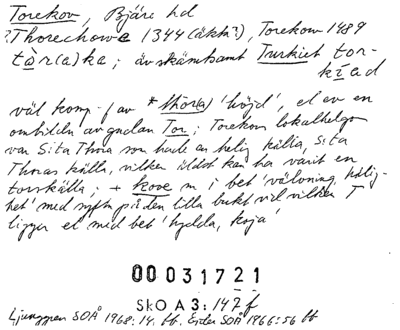 Torekov, Bjäre hd
?Thorechowe 1344 (äkta?), Torekow 1489
tòr(a)ka; äv skämtsamt Turkiet tor-
kíad
väl komp. av *thor(a) 'höjd', el ev en
ombildn av gudan Tor; Torekovs lokalhelgon
var S:ta Thora som hade en helig källa, S:ta
Thoras källa, vilken äldst kan ha varit en
torskälla; + kove m i bet 'välvning, hålig-
het' med syftn på den lilla bukt vid vilken T
ligger el med bet 'hydda, koja'
00031721
SkO A 3: 147 f
Ljunggren SOÅ 1968: 14 ff. Ejder SOÅ 1966: 56 ff